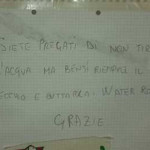 SIETE PREGATI DI NON TIR
L'ACQUA MA BENSÌ RIEMPIRE IL
SECCHIO E BUTTARLA. WATER RO
GRAZIE